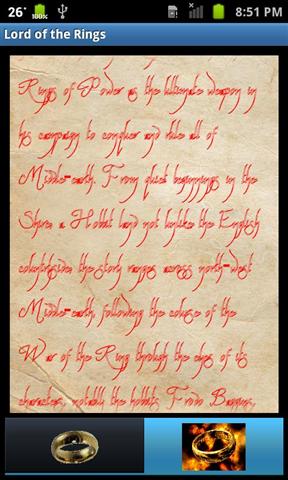 26°
100%
8:51 PM
Lord of the Rings
Rings of Power as the ultimate weapon in
his campaign to conquer and rule all of
Middle-earth. From quiet beginnings in the
Shire, a Hobbit land not unlike the English
countryside, the story ranges across north-west
Middle-earth, following the course of the
War of the Ring through the eyes of its
characters, notably the hobbits Frodo Baggins,